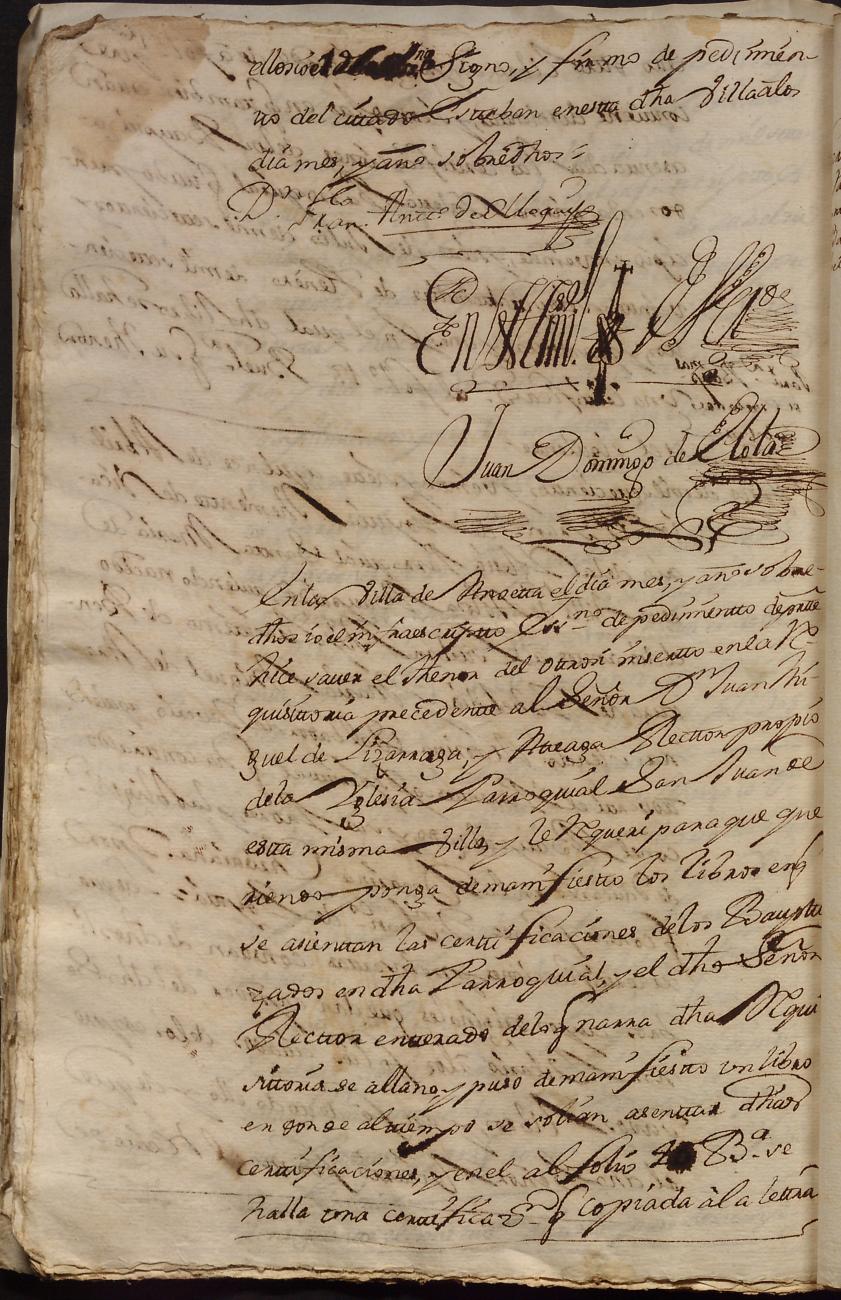 ello yo el Sno Signo, y firmo de pedimen-
tto del cittado Esteban en esta dha Villa a los
dia mes, y año sobredhos =
Dn Fran. Antto. del Uequi
En testimo. de Vd
Juan Domingo de
En la Villa de Azcoitia el dia mes, y año sobre-
dhos io el infraescripto Essno. de pedimentto de partte
hice saver el thenor del otron insertto en la Re-
quisittoria precedente al Señor Dn Juan Mi-
guel de Lizarraga, y Atteaga Rector propio
de la Yglesia Parroquial San Juan de
esta misma Villa, y le Requeri para que que
riendo ponga de manifiestto los libros en q
se asienttan las certtificaciones de los Bauptti
zados en dha Parroquial, y el dho Señor
Recttor entterado de lo q narra dha Requi
sittoria se allano, y puso de manifiestto un libro
en donde al tiempo se solian asenttar dhas
certtificaciones, y en el al folio Ba. se
halla una certtificazon q copiada a la lettra